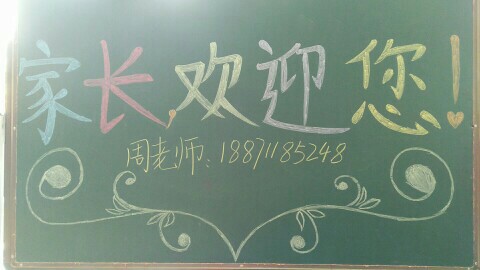 家长,欢迎您!
周老师:18871185248